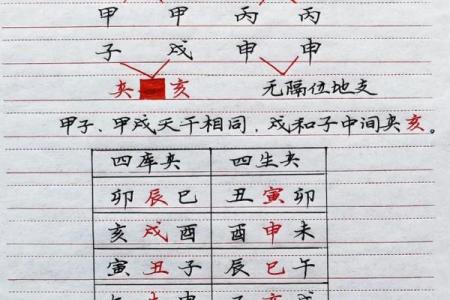 甲 甲 丙 丙
子 戌 申 申
夹 亥 无隔位地支
甲子、甲戌天干相同,戌和子中间夹亥。
四库夹 四生夹
卯 辰 巳 丑 寅 卯
亥 戌 酉 酉 申 未
寅 丑 子 辰 巳 午